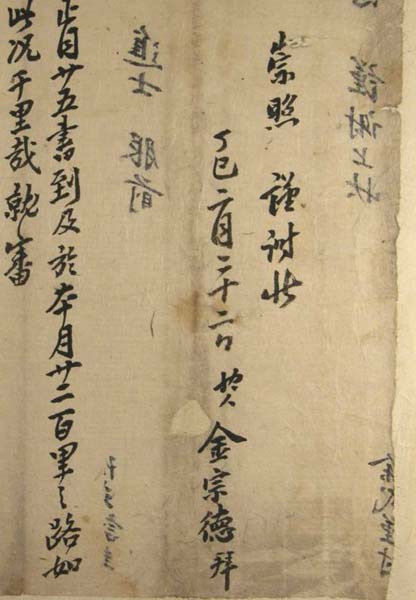 崇照 謹謝狀
丁巳二月二十二日 金宗德拜
進士 服前
正月廿五書到及於本月廿二百里之路如
此況千里哉就審